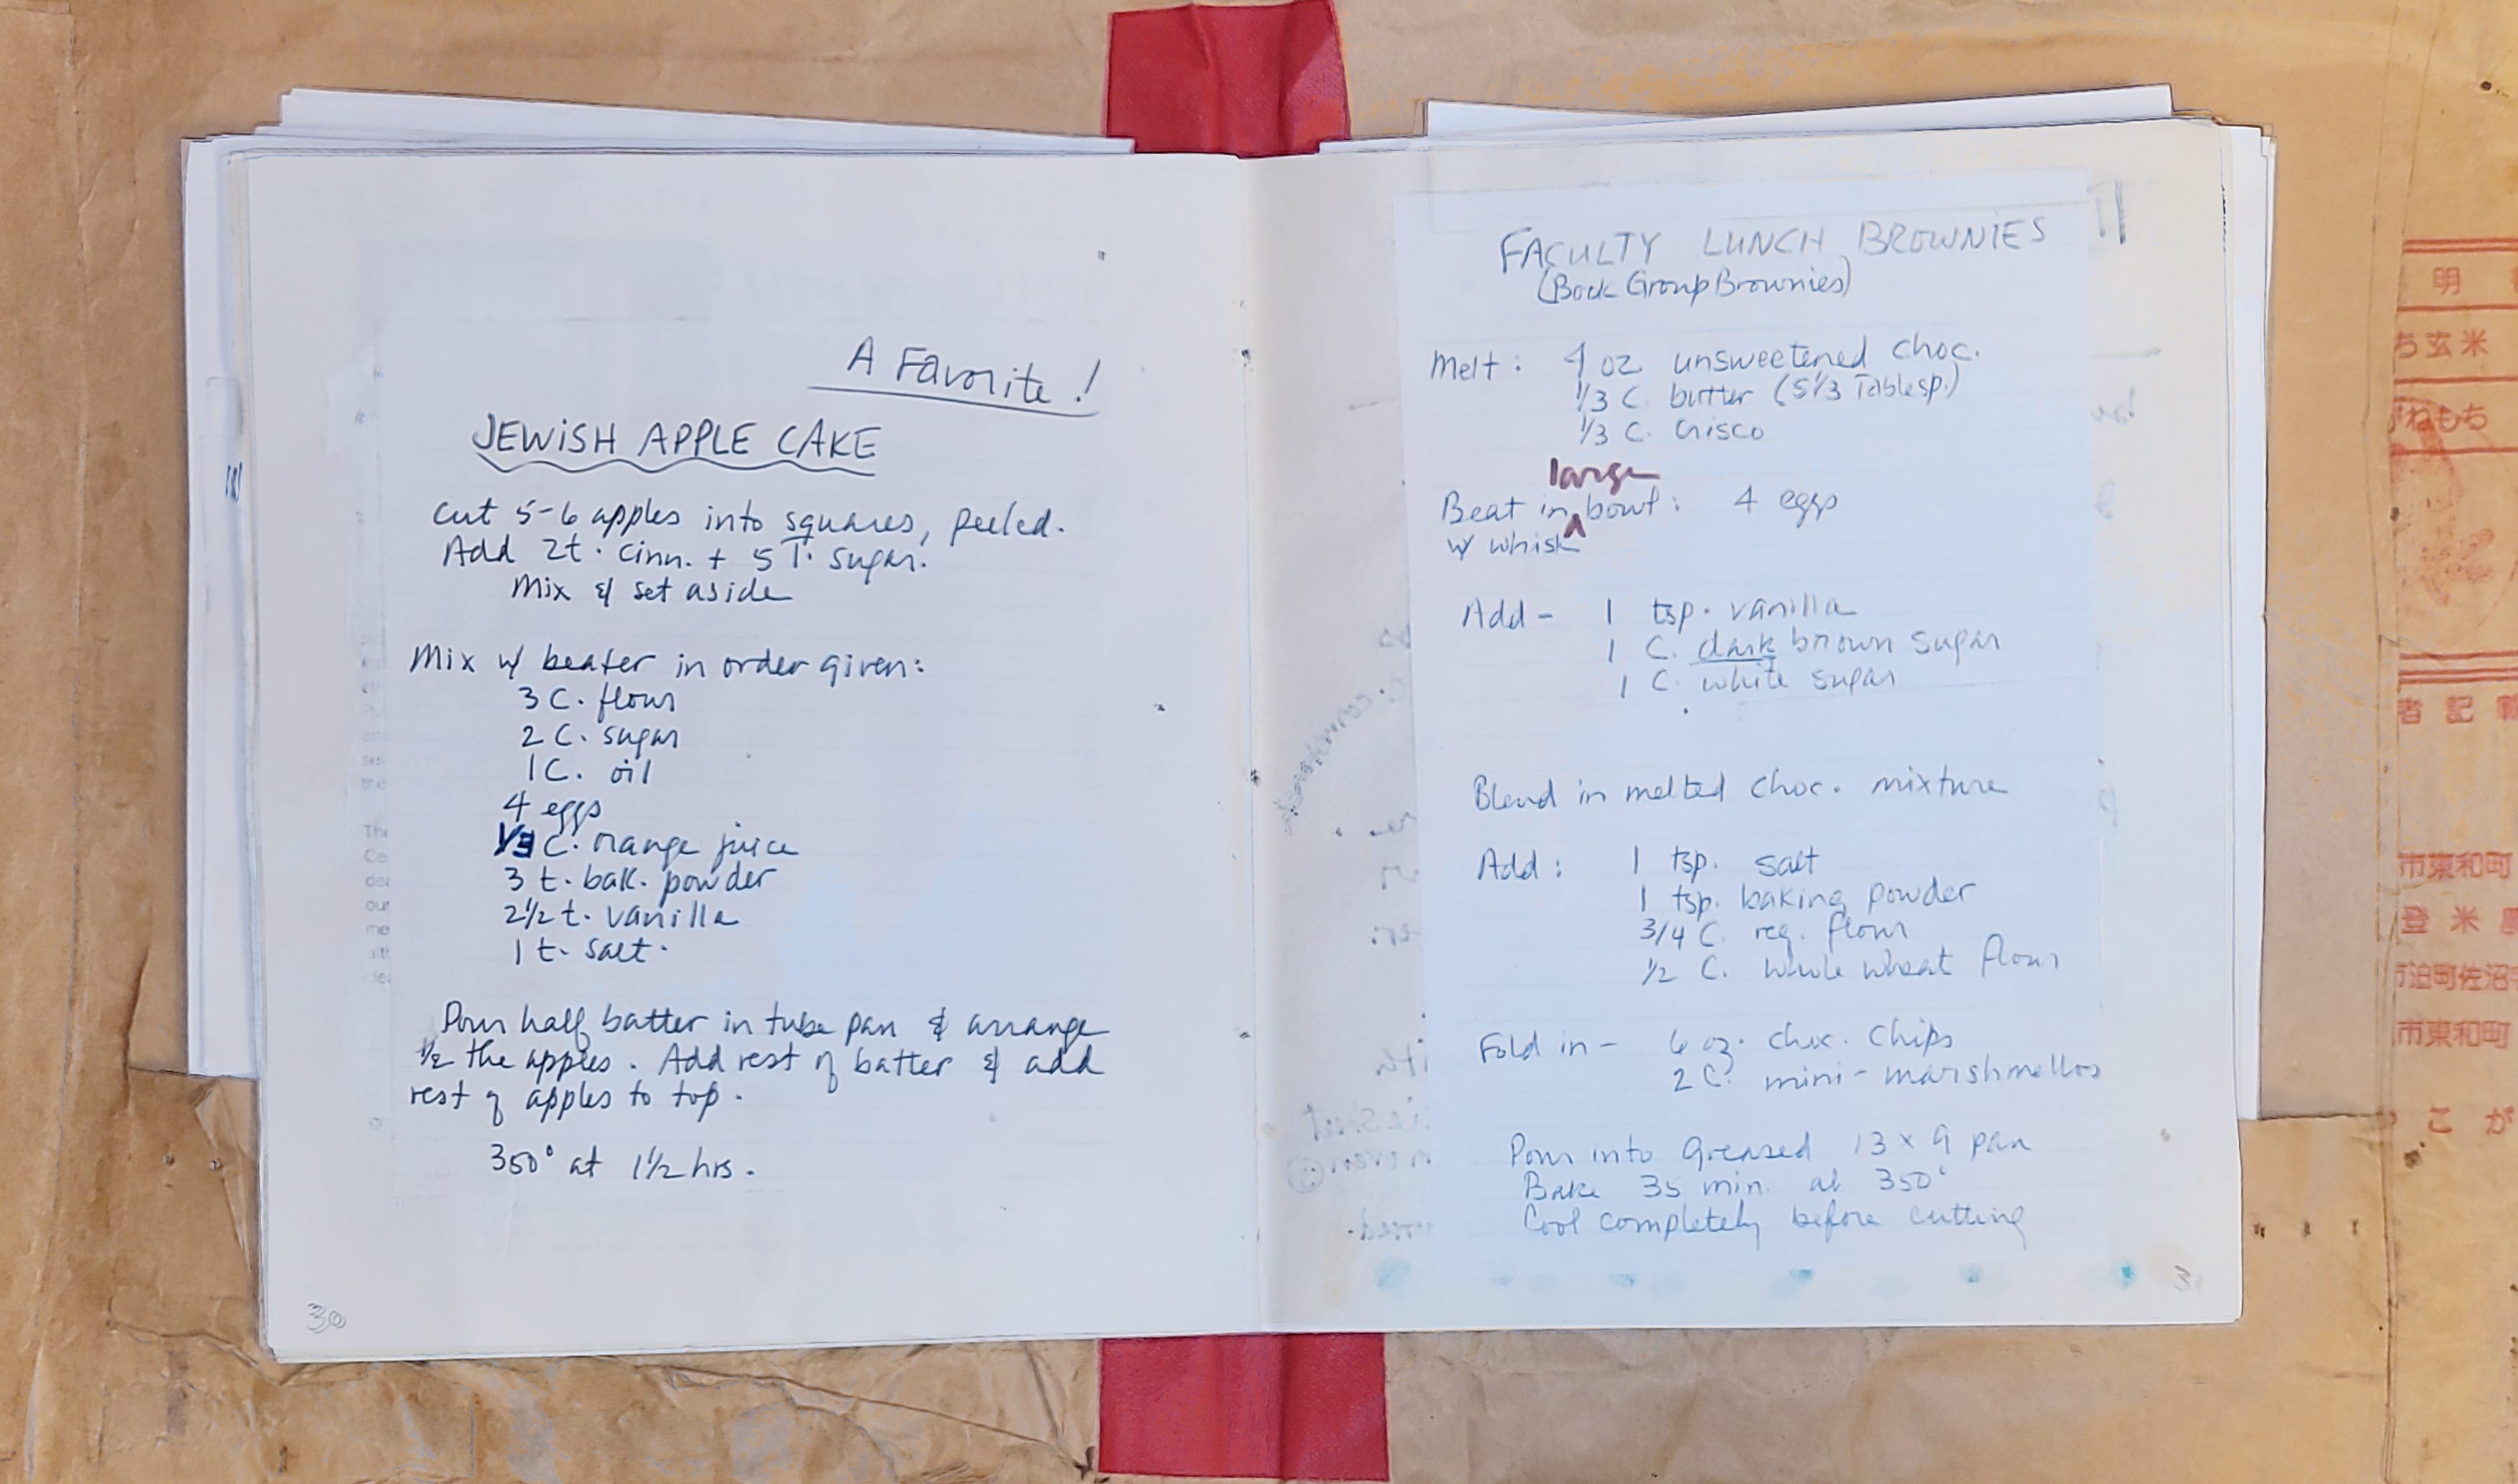 A Favorite!
JEWISH APPLE CAKE
Cut 5-6 apples into squares, peeled.
Add 2t. cinn. + 5 T. sugar.
Mix & set aside
Mix w/ beater in order given:
3 C. flour
2 C. sugar
1 C. oil
4 eggs
1/3 C. orange juice
3 t. bak. powder
2 1/2 t. vanilla
1 t. salt.
Pour half batter in tube pan & arrange
1/2 the apples. Add rest of batter & add
rest of apples to top.
350° at 1 1/2 hrs.
30
FACULTY LUNCH BROWNIES
(Book Group Brownies)
Melt: 4 oz. unsweetened choc.
1/3 C. butter (5 1/3 Tablesp.)
1/3 C. Crisco
large
Beat in ^ bowl: 4 eggs
w/ whisk
Add - 1 tsp. vanilla
1 C. dark brown sugar
1 C. white sugar
Blend in melted choc. mixture
Add: 1 tsp. salt
1 tsp. baking powder
3/4 C. reg. flour
1/2 C. whole wheat flour
Fold in - 6 oz. choc. chips
2 C. mini-marshmellos
Pour into greased 13 x 9 pan
Bake 35 min. at 350°
Cool completely before cutting
明
ち玄米
がねもち
者 記
市東和町
登 米
市迫町佐沼
市東和町
こ が